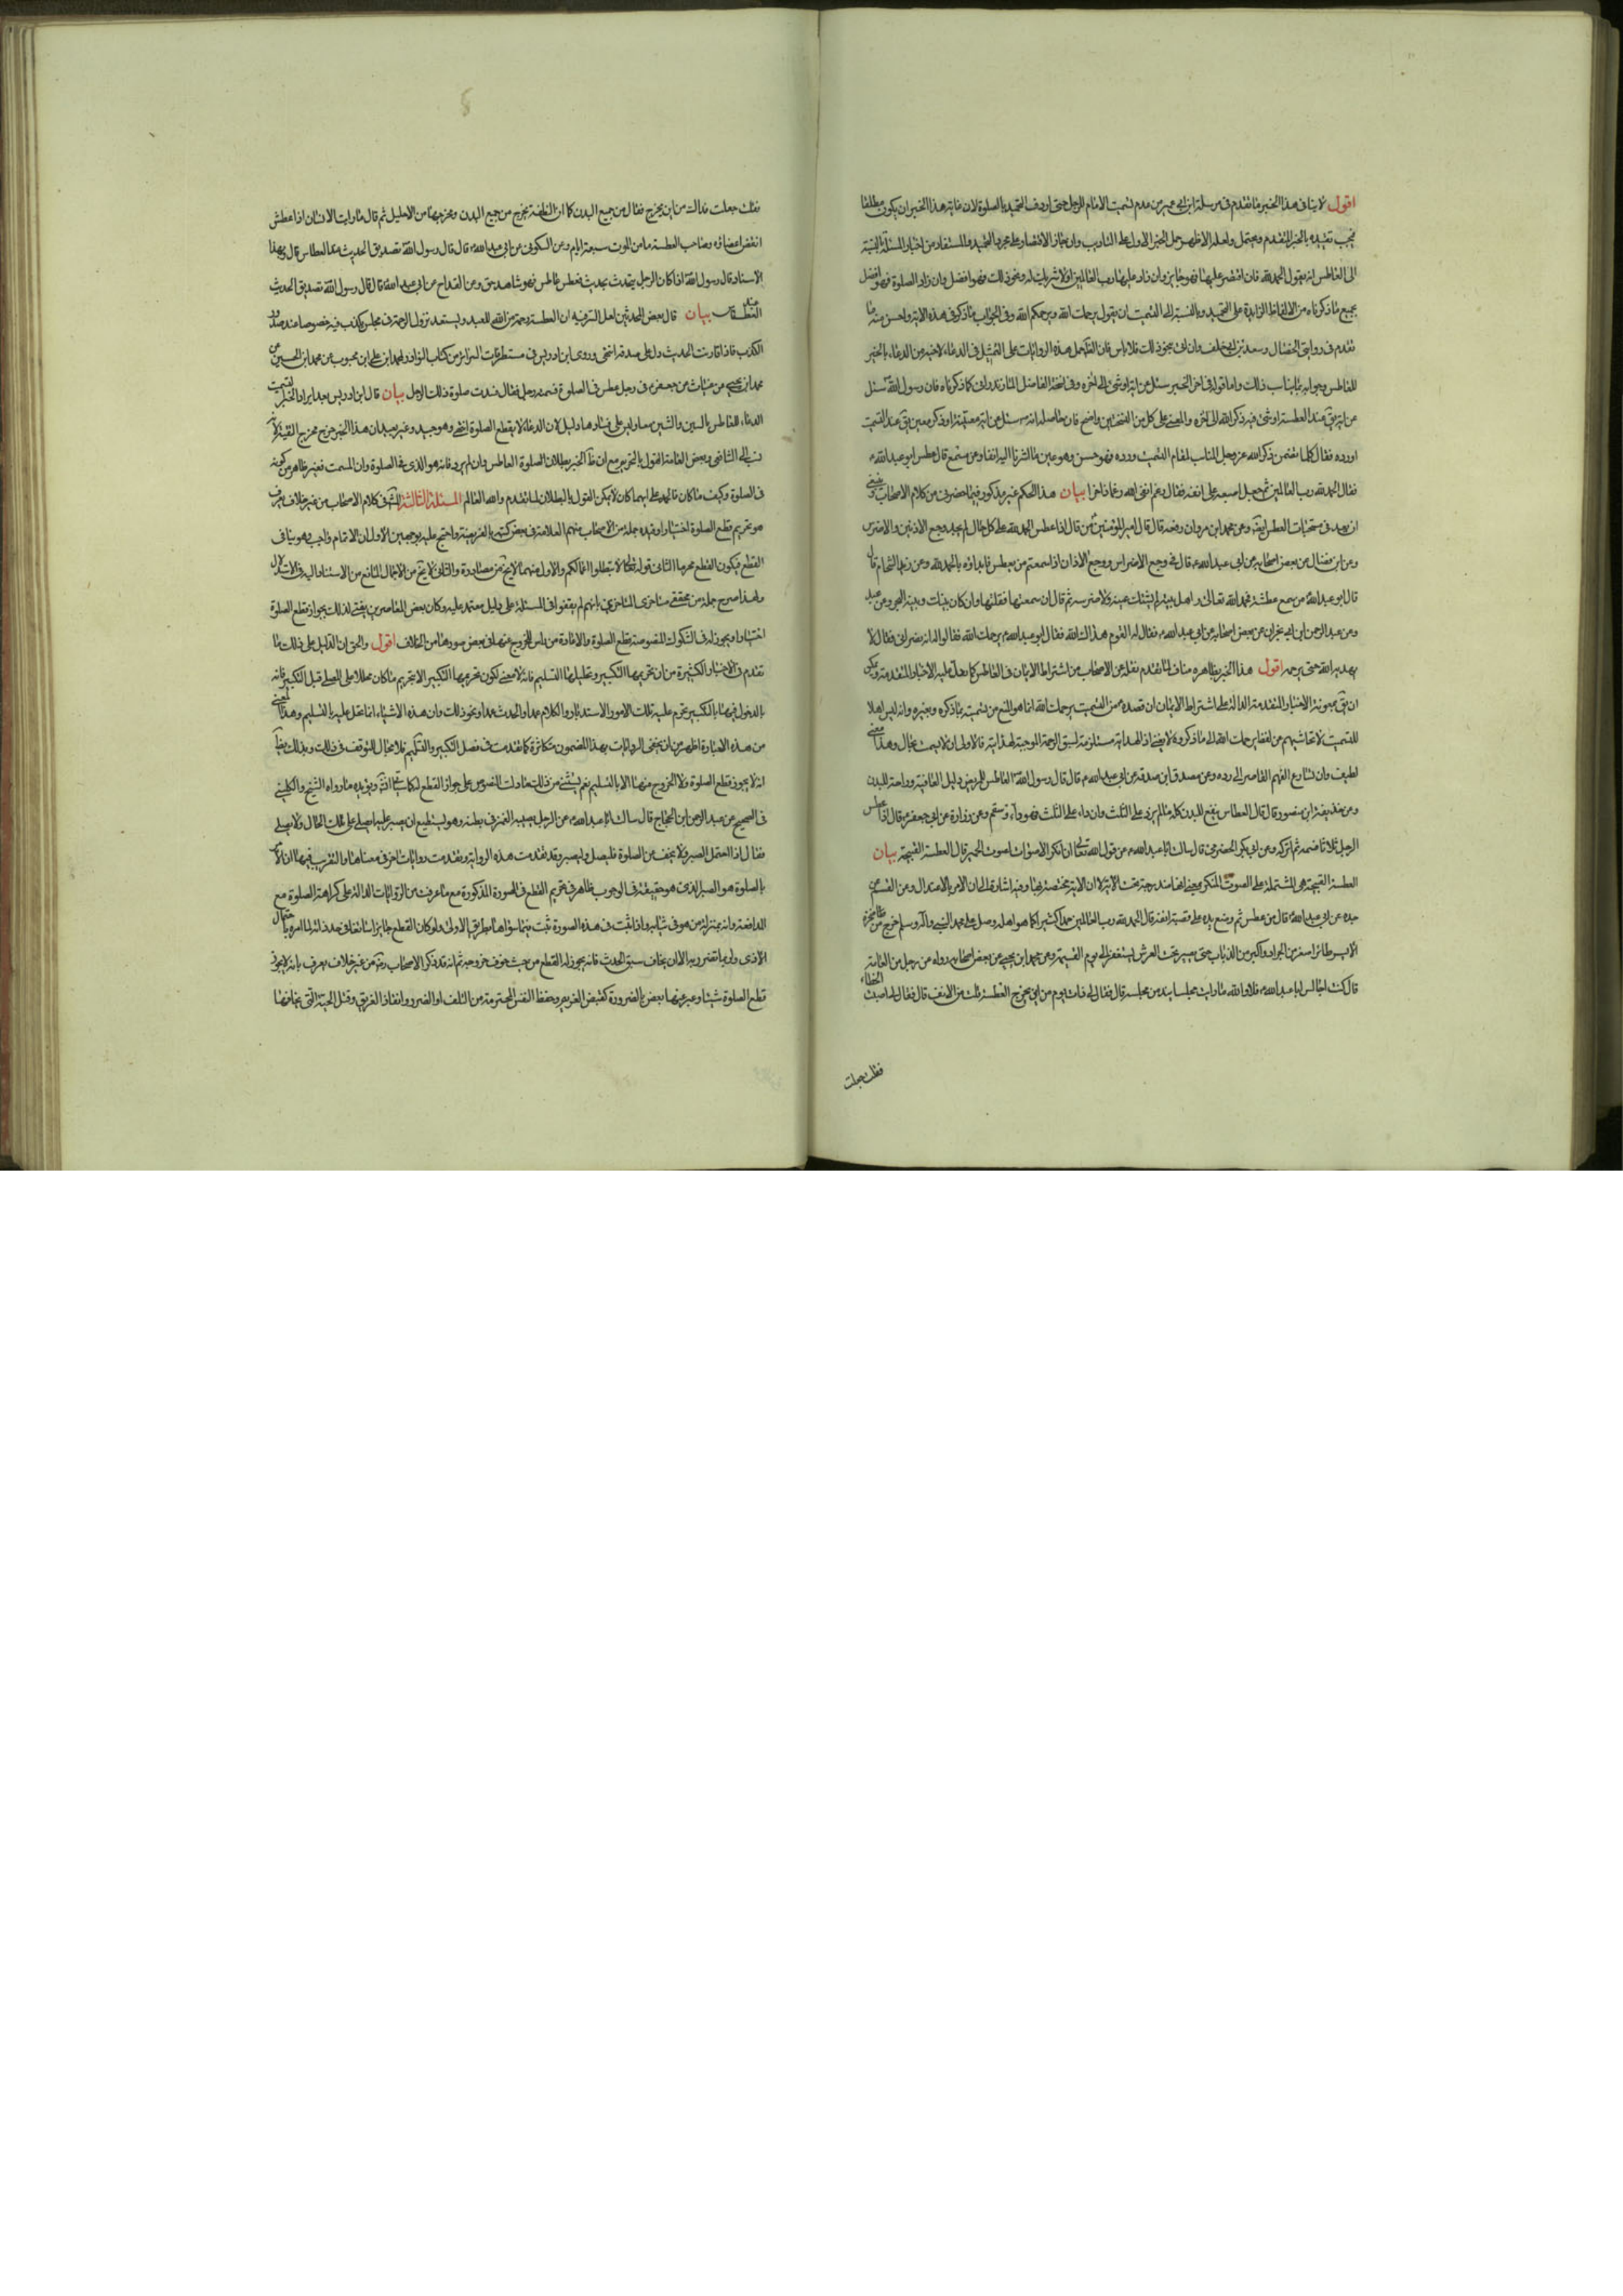 اقول لا ينافى هذا الخبر ما تقدم فى مرسلة ابن ابى عمير من عدم تسميت الامام للرجل حتى اردف التحميد بالصلوة لان غاية هذا الخبر ان يكون مطلقا
فيجب تقييده بالخبر المتقدم ويحتمل ولعله الاظهر حمل الخبر الاول على التاديب وان جاز الاقتصار على مجرد التحميد والمستفاد من اخبار المسئلة بالنسبة
الى العاطس انه يقول الحمد لله فان اقتصر عليها فهو جايز وان زاد عليها رب العالمين او لا شريك له ونحو ذلك فهو افضل وان زاد الصلوة فهو افضل
بجميع ما ذكرناه من الالفاظ الزايدة على التحميد وبالنسبة الى التسميت ان يقول يرحمك الله ويرحمكم الله وفى الجواب ما ذكر فى هذه الاية واحسن منه ما
تقدم فى روايتى الخصال وسعد بن ابى خلف وان
للعاطس وجوابه بما يناسب ذلك واما قوله فى اخر الخبر سئل عن اية او شئ الى اخره وفى نسخة الفاضل المازندرانى كما ذكرناه فان رسول الله سئل
عن اية عند العطسة او شئ فيه ذكر الله الى اخره والمعنى على كل من النسختين واضح فان حاصله انه سئل عن اية معينة او ذكر معين عند التسميت
اورده فقال كلما تضمن ذكر الله عز وجل المناسب لمقام التسميت ورده فهو حسن وهو عين ما اشرنا اليه انفا وعن مسمع قال عطس ابو عبد الله
فقال الحمد لله رب العالمين ثم جعل اصبعه على انفه فقال رغم انفى لله رغما داخرا بيان هذا الحكم غير مذكور فيما حضرنى من كلام الاصحاب وينبغى
ان يعد فى مستحبات العطس وعن محمد ابن مروان رفعه قال قال امير المؤمنين من قال اذا عطس الحمد لله على كل حال لم يجد وجع الاذنين والاضراس
وعن ابن فضال عن بعض اصحابه عن ابى عبد الله قال فى وجع الاضراس ووجع الاذان اذا سمعتم من يعطس فابدؤه بالحمد لله وعن زيد الشحام قال
قال ابو عبد الله من سمع عطسة فحمد الله تعالى واهل بيته لم يشتك عينه ولا ضرسه ثم قال ان سمعتها فقلها وان كان بينك وبينه البحر وعن عبد
وعن عبد الرحمن ابن ابى نجران عن بعض اصحابه عن ابى عبد الله فقال له القوم هداك الله فقال ابو عبد الله يرحمك الله فقالوا له انه نصرانى فقال لا
يهديه الله حتى يرحمه اقول هذا الخبر بظاهره مناف لما تقدم نقله عن الاصحاب من اشتراط الايمان فى العاطس كما دل عليه الاخبار المتقدمة ويمكن
للتسميت
لطيف وان تسارع الفهم القاصر الى رده وعن مسعدة ابن صدقة عن ابى عبد الله قال قال رسول الله العاطس للمريض دليل العافية وراحة للبدن
وعن حذيفة ابن منصور قال قال العطاس ينفع للبدن كله ما لم يزد على الثلث وان زاد على الثلث فهو داء وسقم وعن زرارة عن ابى جعفر قال اذا عطس
الرجل ثلاثا فسمته ثم اتركه وعن ابى بكر الحضرمى قال سالت ابا عبد الله عن قول الله تعالى ان انكر الاصوات لصوت الحمير قال العطسة القبيحة بيان
العطسة القبيحة هى المشتملة على الصوت المنكر
جده عن ابى عبد الله قال من عطس ثم وضع يده على قصبة انفه ثم قال الحمد لله رب العالمين حمدا كثيرا كما هو اهله وصلى الله على محمد النبى وآله وسلم خرج من منخره
الايسر طائر اصغر من الجراد واكبر من الذباب حتى يصير تحت العرش يستغفر الله الى يوم القيمة وعن محمد ابن يحيى عن بعض اصحابه رواه عن رجل من العامة
قال كنت اجالس ابا عبد الله فلا والله ما رايت مجلسا انبل من مجلسه قال فقال لى ذات يوم من اين يخرج العطسة فقلت من الانف قال فقال لى اصبت الخطاء
فقلت جعلت
فقلت جعلت فداك من اين يخرج فقال من جميع البدن كما ان النطفة تخرج من جميع البدن ومخرجها من الاحليل ثم قال ما رايت الانسان اذا عطس
انتفض اعضاؤه وصاحب العطسة يامن الموت سبعة ايام وعن السكونى عن ابى عبد الله قال قال رسول الله تصديق الحديث عند العطاس قال وبهذا
الاسناد قال رسول الله اذا كان الرجل يتحدث بحديث فعطس عاطس فهو شاهد حق وعن القداح عن ابى عبد الله قال قال رسول الله تصديق الحديث
عند العطاس بيان قال بعض المحدثين لعل السر فيه ان العطسة رحمة من الله للعبد ويستبعد نزول الرحمة فى مجلس يكذب فيه خصوصا عند صدور
الكذب فاذا قارنت الحديث دل على صدقه انتهى وروى ابن ادريس فى مستطرفات السراير من كتاب النوادر لمحمد ابن على ابن محبوب عن محمد ابن الحسين عن
محمد ابن يحيى عن غياث عن جعفر فى رجل عطس فى الصلوة فسمته رجل فقال فسدت صلوة ذلك الرجل بيان قال ابن ادريس بعد ايراد الخبر التسميت
الدعاء للعاطس بالسين والشين معا وليس على فسادها دليل لان الدعاء لا يقطع الصلوة انتهى وهو جيد وغير بعيد ان هذا الخبر خرج مخرج التقية
نسب الى الشافعى وبعض العامة القول بالتحريم مع ان ظاهر الخبر بطلان الصلوة العاطس
فى الصلوة وكيف ما كان فانه على ايهما كان لا يمكن القول بالبطلان لما تقدم والله العالم المسئلة الثالثة المشهور فى كلام الاصحاب من غير خلاف يعرف
هو تحريم قطع الصلوة اختيارا وقيده جملة من الاصحاب منهم العلامة فى بعض كتبه بالفريضة واحتج عليه بوجهين الاول ان الاتمام واجب وهو ينافى
القطع فيكون القطع محرما الثانى قوله تعالى ولا تبطلوا اعمالكم والاول منهما لا يخ من مصادرة والثانى لا يخ من الاجمال المانع من الاستناد اليه فى الاستدلال
ولهذا صرح جملة من محققى متاخرى المتاخرين بانهم لم يقفوا فى المسئلة على دليل معتمد عليه وكان بعض المعاصرين يفتى لذلك بجواز قطع الصلوة
اختيارا ويجوز له فى الشكوك المنصوصة قطع الصلوة والاعادة من راس للخروج عنها فى بعض صورها من الخلاف اقول والحق ان الدليل على ذلك ما
تقدم فى الاخبار الكثيرة من ان تحريمها التكبير وتحليلها التسليم فانه لا معنى لكون تحريمها التكبير الا تحريم ما كان محللا على المصلى قبل التكبير فانه
بالدخول فيها بالتكبير يحرم عليه تلك الامور والاستدبار والكلام عمدا والحدث عمدا ونحو ذلك وان هذه الاشياء انما تحل عليه بالتسليم وهذا المعنى
من هذه العبارة اظهر من ان يخفى الروايات بهذا المضمون متكاثرة كما تقدمت فى فصل التكبير والتسليم فلا مجال للتوقف فى ذلك وبذلك
انه لا يجوز قطع الصلوة ولا الخروج منها الا بالتسليم نعم يستثنى من ذلك ما دلت النصوص على جواز القطع ويؤيده ما رواه الشيخ والكلينى
فى الصحيح عن عبد الرحمن ابن الحجاج قال سالت ابا عبد الله عن الرجل يصيبه الغمز فى بطنه وهو يستطيع ان يصبر عليه ايصلى على تلك الحال او لا يصلى
فقال اذا احتمل الصبر ولا يخف عن الصلوة فليصل وليصبر وقد تقدمت هذه الرواية وتقدمت روايات اخر فى معناها والتقريب فيها ان الامر
بالصلوة هو الصبر الذى هو حقيقة فى الوجوب ظاهر فى تحريم القطع فى الصورة المذكورة مع ما عرفت من الروايات الدالة على كراهة الصلوة مع
المدافعة وانه بمنزلة من هو فى ثيابه واذا ثبت فى هذه الصورة ثبت فيما سواها بطريق الاولى ولو كان القطع جايزا
الاذى ولو بما تضرر به الا ان يخاف سبق الحدث فانه يجوز له القطع من حيث خوف خروجه ثم انه قد ذكر الاصحاب من غير خلاف يعرف بانه لا يجوز
قطع الصلوة شيئا وعبر عنها بعض بالضرورة كقبض الغريم وحفظ النفس المحترمة من التلف او الضرر وانقاذ الغريق وقتل الحية التى يخافها